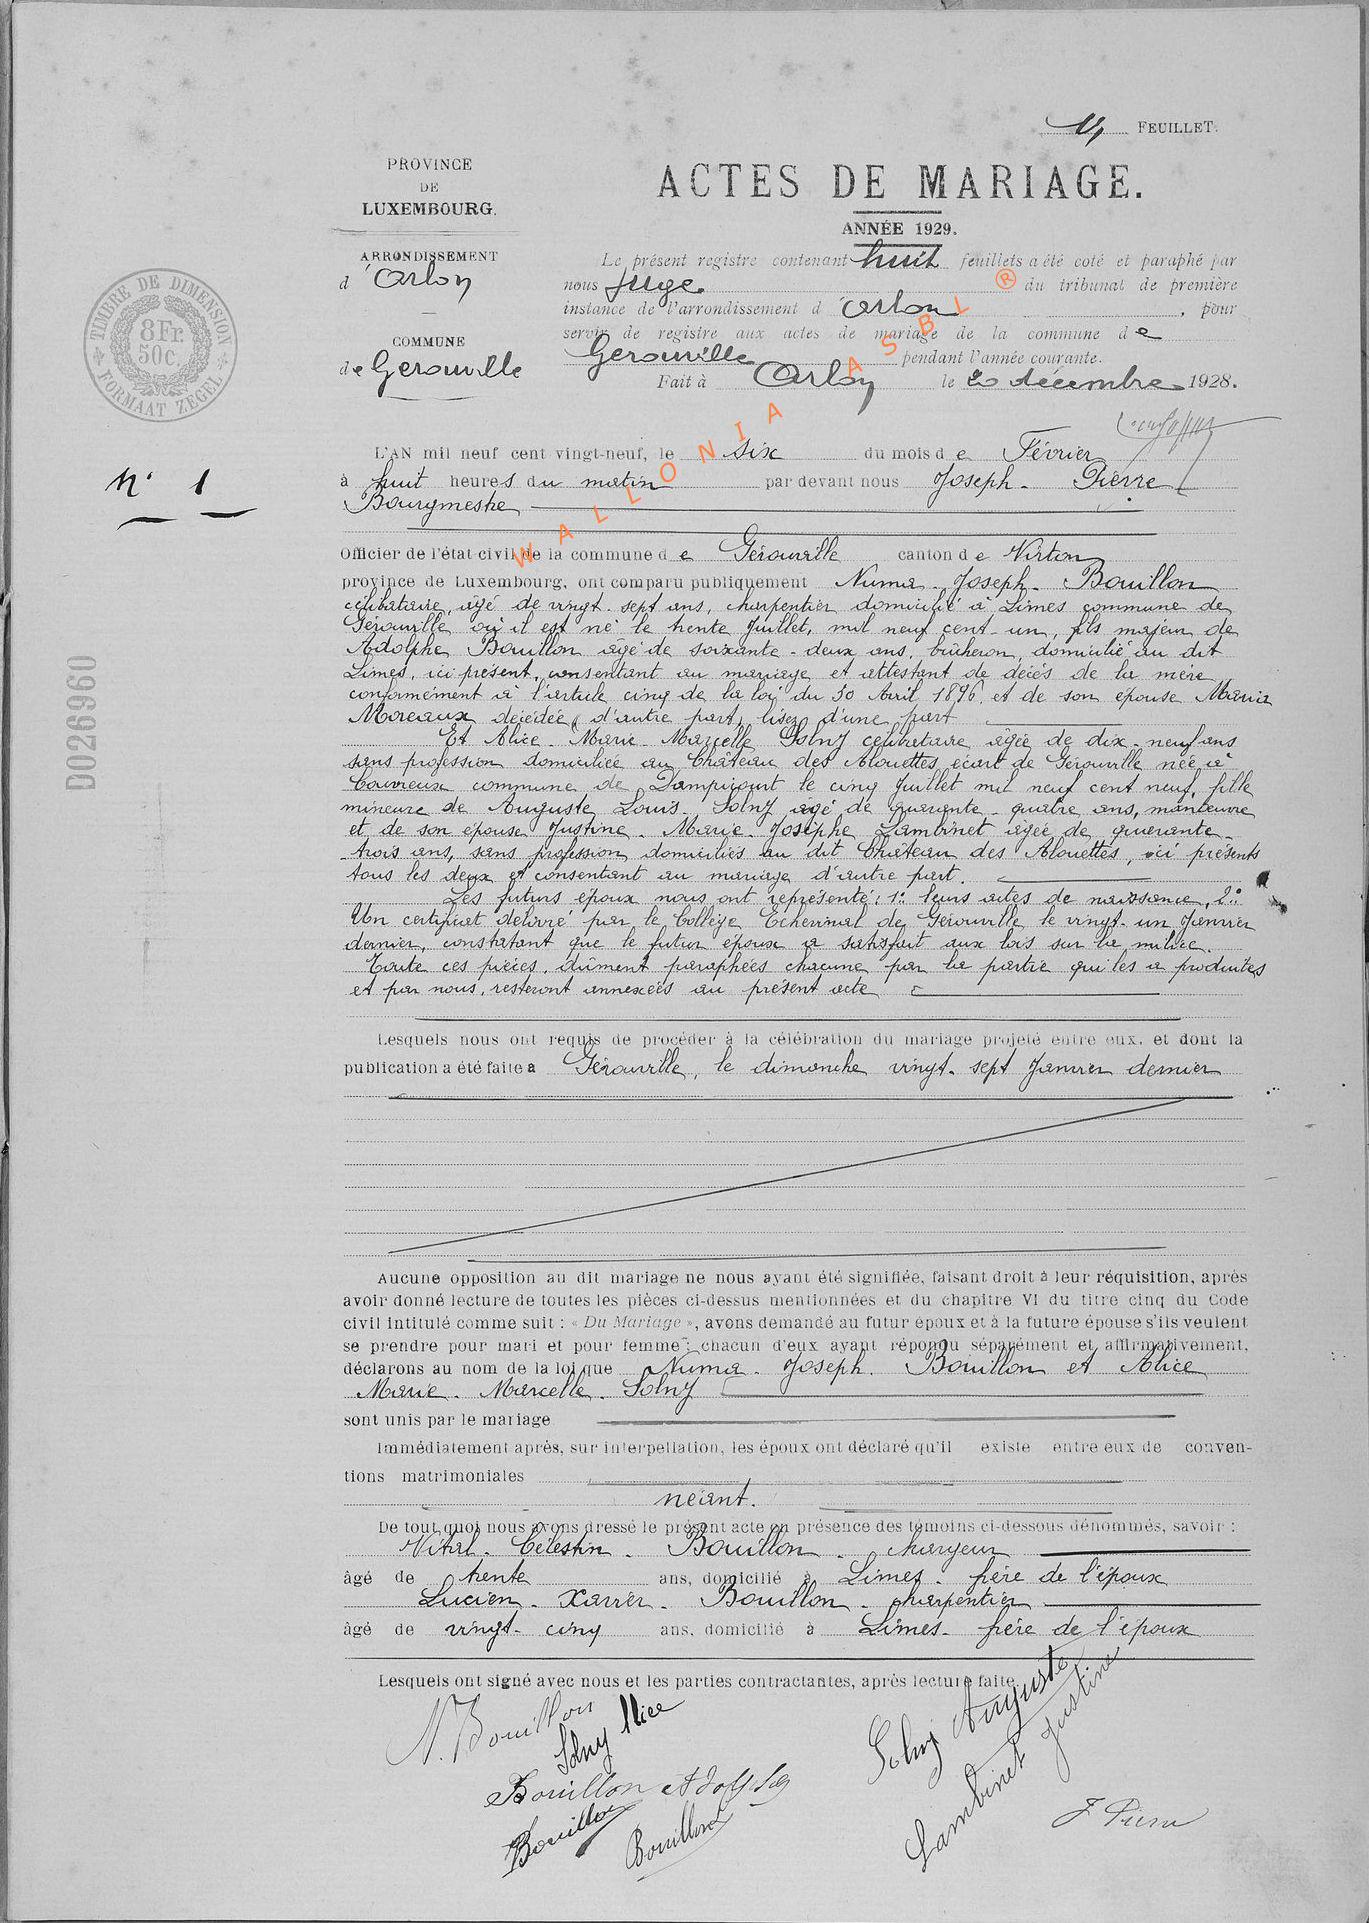 14 FEUILLET.
PROVINCE
DE
LUXEMBOURG.
ARRONDISSEMENT
d'Arlon
COMMUNE
de Gerouville
TIMBRE DE DIMENSION
8 Fr.
50c.
FORMAAT ZEGEL
ACTES DE MARIAGE.
ANNÉE 1929.
Le présent registre contenant huit feuillets a été coté et paraphé par
nous Juge du tribunal de première
instance de l'arrondissement d'Arlon, pour
servir de registre aux actes de mariage de la commune de
Gerouville pendant l'année courante.
Fait à Arlon le 20 décembre 1928.
WALLONIA ASBL ®
N° 1
D026960
L'AN mil neuf cent vingt-neuf, le six du mois de Février
à huit heures du matin par devant nous Joseph - Pierre
Bourgmestre
Officier de l'état civil de la commune de Gérouville canton de Virton
province de Luxembourg, ont comparu publiquement Numa - Joseph - Bouillon
célibataire, âgé de vingt-sept ans, charpentier domicilié à Limes commune de
Gérouville où il est né le trente Juillet, mil neuf cent-un, fils majeur de
Adolphe Bouillon âgé de soixante-deux ans, bûcheron, domicilié au dit
Limes, ici présent, consentant au mariage et attestant de décès de la mère
conformément à l'article cinq de la loi du 30 Avril 1896, et de son épouse Maria
Moreaux décédée, d'autre part, lisez d'une part
Et Alice - Marie - Marcelle Solny célibataire âgée de dix-neuf ans
sans profession domiciliée au Château des Alouettes, écart de Gérouville née à
Couvreux commune de Dampicourt le cinq Juillet mil neuf cent neuf, fille
mineure de Auguste Louis Solny âgé de quarante-quatre ans, manœuvre
et de son épouse Justine - Marie - Josèphe Lambinet âgée de quarante-
trois ans, sans profession domiciliés au dit Château des Alouettes, ici présents
tous les deux et consentant au mariage d'autre part.
Les futurs époux nous ont représenté : 1° leurs actes de naissance, 2°
Un certificat délivré par le Collège Echevinal de Gérouville le vingt-un Janvier
dernier, constatant que le futur époux a satisfait aux lois sur la milice.
Toute ces pièces, dûment paraphées chacune par la partie qui les a produites
et par nous, resteront annexées au présent acte
Lesquels nous ont requis de procéder à la célébration du mariage projeté entre eux, et dont la
publication a été faite à Gérouville, le dimanche vingt-sept Janvier dernier
Aucune opposition au dit mariage ne nous ayant été signifiée, faisant droit à leur réquisition, après
avoir donné lecture de toutes les pièces ci-dessus mentionnées et du chapitre VI du titre cinq du Code
civil intitulé comme suit : « Du Mariage », avons demandé au futur époux et à la future épouse s'ils veulent
se prendre pour mari et pour femme ; chacun d'eux ayant répondu séparément et affirmativement,
déclarons au nom de la loi que Numa - Joseph - Bouillon et Alice
Marie - Marcelle - Solny
sont unis par le mariage
Immédiatement après, sur interpellation, les époux ont déclaré qu'il existe entre eux de conven-
tions matrimoniales
néant.
De tout quoi nous avons dressé le présent acte en présence des témoins ci-dessous dénommés, savoir :
Vital - Célestin - Bouillon - chargeur
âgé de trente ans, domicilié à Limes - frère de l'époux
Lucien - Xavier - Bouillon - charpentier
âgé de vingt-cinq ans, domicilié à Limes - frère de l'époux
Lesquels ont signé avec nous et les parties contractantes, après lecture faite.
N. Bouillon
Solny Alice
Bouillon Adolphe
Bouillon
Bouillon
Solny Auguste
Lambinet Justine
J Pierre